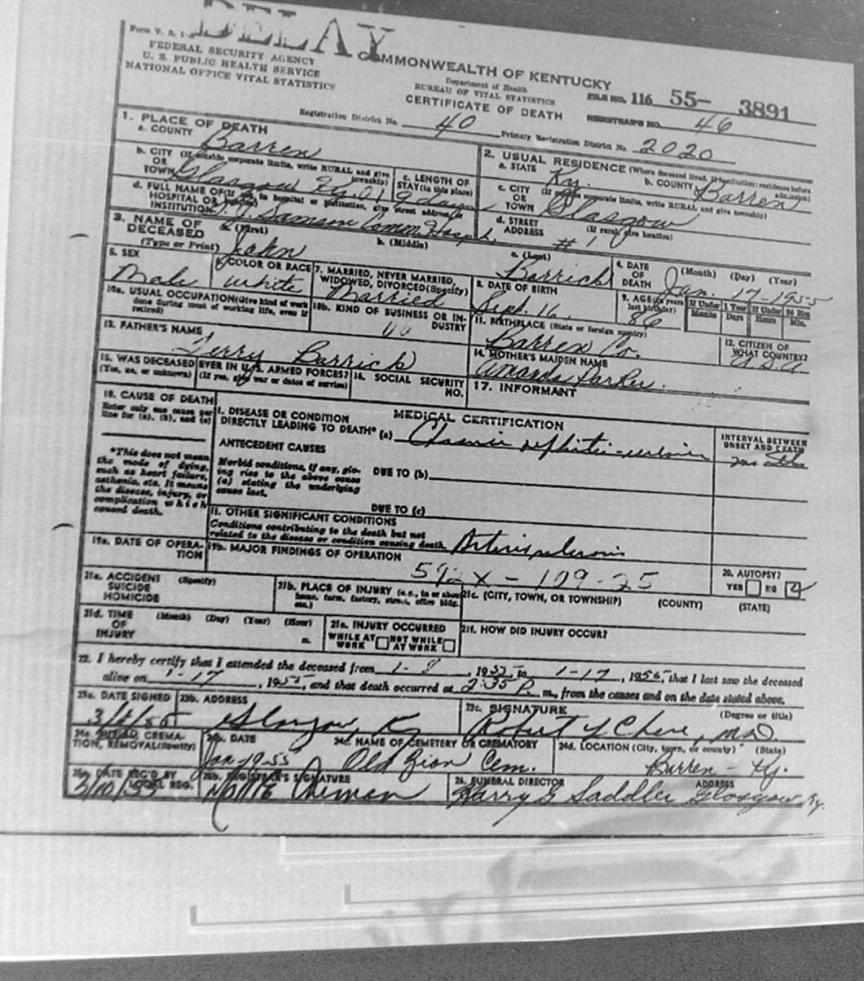 DELAY
Form V. S. 1-
FEDERAL SECURITY AGENCY
U. S. PUBLIC HEALTH SERVICE
NATIONAL OFFICE VITAL STATISTICS
COMMONWEALTH OF KENTUCKY
Department of Health
BUREAU OF VITAL STATISTICS
CERTIFICATE OF DEATH
FILE NO. 116 55- 3891
REGISTRAR'S NO. 46
Registration District No. 40 Primary Registration District No. 2020
1. PLACE OF DEATH
a. COUNTY Barren
b. CITY (If outside corporate limits, write RURAL and give township)
OR
TOWN Glasgow Ky.
c. LENGTH OF STAY (in this place)
9 days
d. FULL NAME OF (If not in hospital or institution, give street address)
HOSPITAL OR
INSTITUTION T. J. Samson Comm. Hosp.
2. USUAL RESIDENCE (Where deceased lived. If institution: residence before admission)
a. STATE Ky. b. COUNTY Barren
c. CITY (If outside corporate limits, write RURAL and give township)
OR
TOWN Glasgow
d. STREET (If rural, give location)
ADDRESS # 1
3. NAME OF DECEASED
(Type or Print)
a. (First) John
b. (Middle)
c. (Last) Barrick
4. DATE OF DEATH
(Month) (Day) (Year)
Jan. 17-1955
5. SEX
Male
6. COLOR OR RACE
White
7. MARRIED, NEVER MARRIED, WIDOWED, DIVORCED (Specify)
Married
8. DATE OF BIRTH
Sept. 16,
9. AGE (In years last birthday)
86
If Under 1 Year
Months Days
If Under 24 Hrs
Hours Min.
10a. USUAL OCCUPATION (Give kind of work done during most of working life, even if retired)
10b. KIND OF BUSINESS OR INDUSTRY
11. BIRTHPLACE (State or foreign country)
Barren Co.
12. CITIZEN OF WHAT COUNTRY?
U.S.A.
13. FATHER'S NAME
Terry Barrick
14. MOTHER'S MAIDEN NAME
Amanda Parker
15. WAS DECEASED EVER IN U. S. ARMED FORCES?
(Yes, no, or unknown) (If yes, give war or dates of service)
16. SOCIAL SECURITY NO.
17. INFORMANT
18. CAUSE OF DEATH
Enter only one cause per line for (a), (b), and (c)
*This does not mean the mode of dying, such as heart failure, asthenia, etc. It means the disease, injury, or complication which caused death.
MEDICAL CERTIFICATION
I. DISEASE OR CONDITION
DIRECTLY LEADING TO DEATH* (a) Chronic nephritis-uremia
INTERVAL BETWEEN ONSET AND DEATH
ANTECEDENT CAUSES
Morbid conditions, if any, giving rise to the above cause (a) stating the underlying cause last.
DUE TO (b)
DUE TO (c)
II. OTHER SIGNIFICANT CONDITIONS
Conditions contributing to the death but not related to the disease or condition causing death. Arteriosclerosis
19a. DATE OF OPERATION
19b. MAJOR FINDINGS OF OPERATION
592X - 109-25
20. AUTOPSY?
YES NO
21a. ACCIDENT (Specify)
SUICIDE
HOMICIDE
21b. PLACE OF INJURY (e.g., in or about home, farm, factory, street, office bldg. etc.)
21c. (CITY, TOWN, OR TOWNSHIP) (COUNTY) (STATE)
21d. TIME OF INJURY
(Month) (Day) (Year) (Hour)
m.
21e. INJURY OCCURRED
WHILE AT WORK NOT WHILE AT WORK
21f. HOW DID INJURY OCCUR?
22. I hereby certify that I attended the deceased from 1-8, 1955, to 1-17, 1955, that I last saw the deceased
alive on 1-17, 1955, and that death occurred at 2:35 P m., from the causes and on the date stated above.
23a. DATE SIGNED
3/8/55
23b. ADDRESS
Glasgow, Ky
23c. SIGNATURE (Degree or title)
Robert M.D.
24a. BURIAL, CREMATION, REMOVAL (Specify)
24b. DATE
Jan-19-55
24c. NAME OF CEMETERY OR CREMATORY
Old Zion Cem.
24d. LOCATION (City, town, or county) (State)
Barren - Ky.
25a. DATE REC'D BY LOCAL REG.
3/10/55
25b. REGISTRAR'S SIGNATURE
26. FUNERAL DIRECTOR ADDRESS
Harry G Saddler Glasgow, Ky.